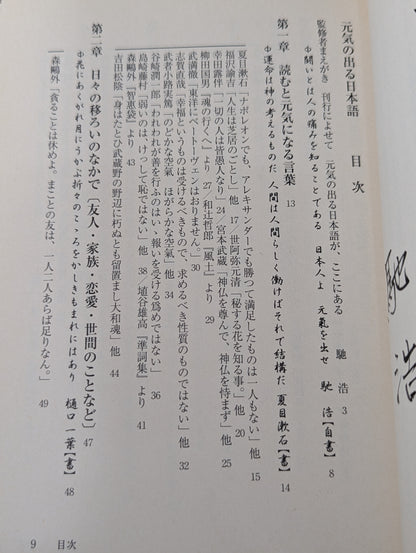 元気の出る日本語
目次
監修者まえがき 刊行によせて 元気の出る日本語が、ここにある 馳 浩 3
⊕闘いとは人の痛みを知ることである 日本人よ 元氣を出せ 馳 浩【自書】 8
第一章 読むと元気になる言葉 13
⊕運命は神の考えるものだ 人間は人間らしく働けばそれで結構だ 夏目漱石【書】 14
夏目漱石「ナポレオンでも、アレキサンダーでも勝つて満足したものは一人もない」他 15
福沢諭吉「人生は芝居のごとし」他 17／世阿弥元清「秘する花を知る事。」他 20
幸田露伴「一切の人は皆愚人なり」他 24／宮本武蔵「神仏を尊んで、神仏を恃まず」他 25
柳田国男「魂の行くへ」より 27／和辻哲郎「風土」より 29
武満徹「東洋にベートーヴェンはおりません。」30
志賀直哉「幸福というものは受けるべきもので、求めるべき性質のものではない」他 32
武者小路実篤「のどかな空氣 ほがらかな空氣」他 34
谷崎潤一郎「われわれが善を行ふのはい報いを受ける爲めではない」他 36
島崎藤村「弱いのはけっして恥ではない」他 38／埴谷雄高「準詞集」より 41
森鷗外「智恵袋」より 43
吉田松陰「身はたとひ武蔵野の野辺に朽ぬとも留置まし大和魂」他 44
第二章 日々の移ろいのなかで〔友人・家族・恋愛・世間のことなど〕 47
⊕花にあくがれ月にうかぶ折々のこころをかしきもまれにはあり 樋口一葉【書】 48
森鷗外「貪ることは休めよ。まことの友は、一人二人あらば足りなん。」 49
9 目次
馳 浩